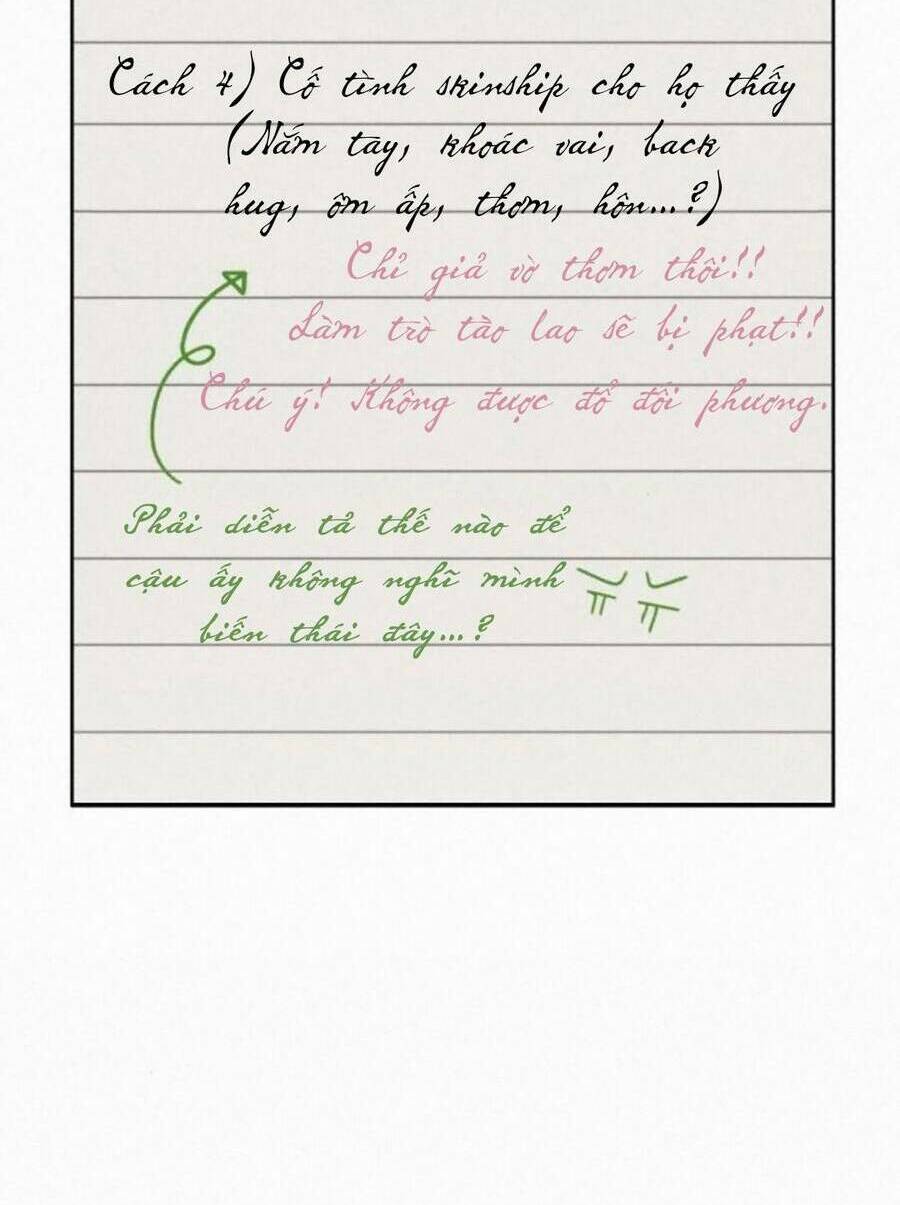 Cách 4) Cố tình skinship cho họ thấy
(Nắm tay, khoác vai, back
hug, ôm ấp, thơm, hôn...?)
Chỉ giả vờ thơm thôi!!
Làm trò tào lao sẽ bị phạt!!
Chú ý! Không được đổ đối phương.
Phải diễn tả thế nào để
cậu ấy không nghĩ mình
biến thái đây...?
ㅠㅠ